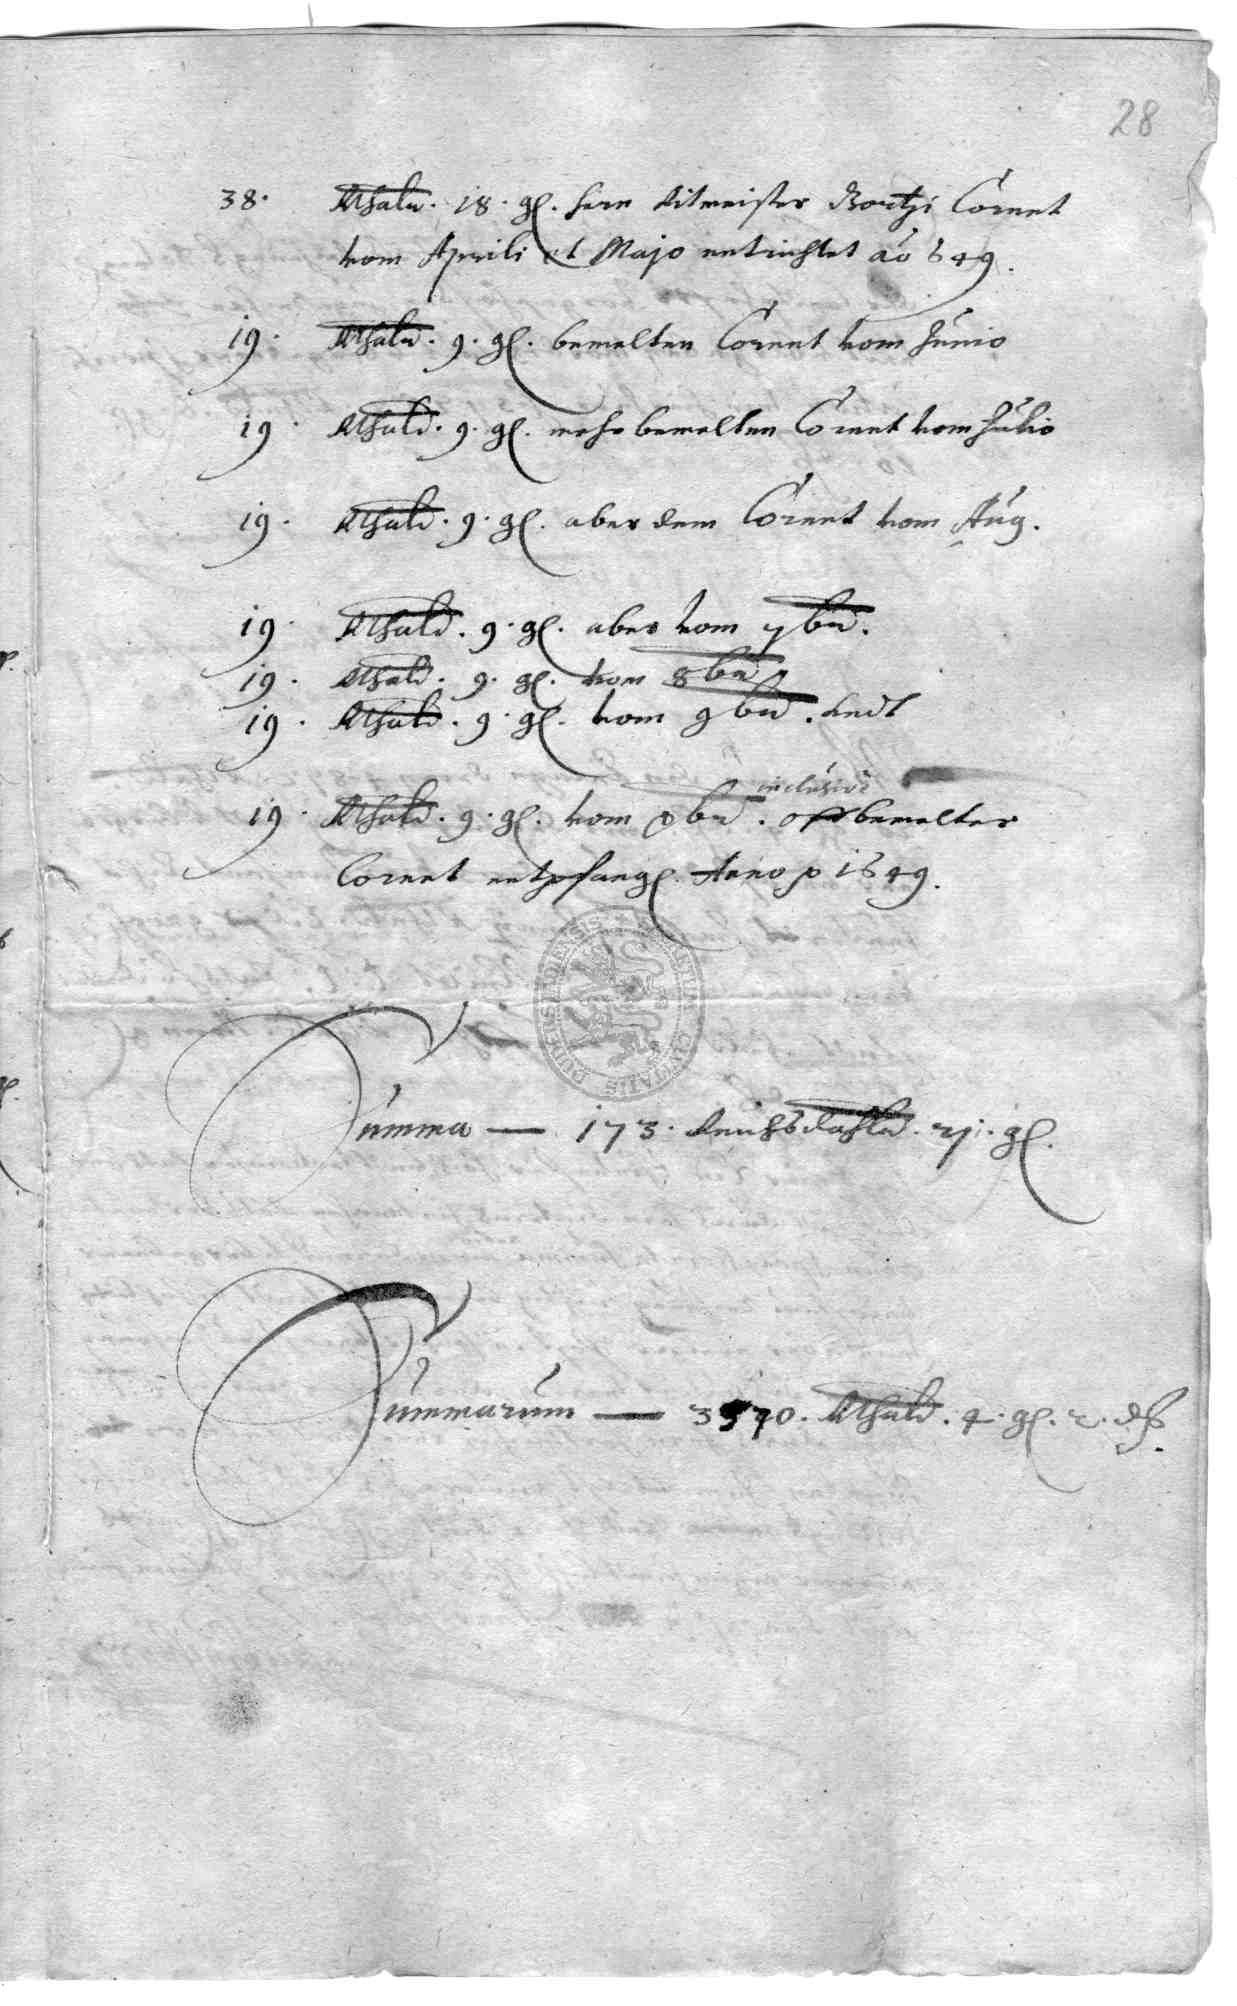 28
38. Rthaler. 18. gl. hern Ritmeister Bortzi Cornet
vom Aprili et Majo entrichtet aó 649.
19. Rthaler. 9. gl. bemelten Cornet vom Junio
19. Rthald. 9. gl. mehr bemelten Cornet vom Julio
19. Rthald. 9. gl. aber dem Cornet vom Aug.
19. Rthald. 9. gl. aber vom 7br.
19. Rthald. 9. gl. vom 8br.
19. Rthald. 9. gl. vom 9br. undt
inclusivè
19. Rthald. 9. gl. vom Xbr. offtbemelter
Cornet entpfangen Anno 1649.
SIGILLUM CIVITATIS
Summa — 173. Reichsdahler. 21. gl.
Summarum — 3570. Rthald. 4. gl. 2. d.